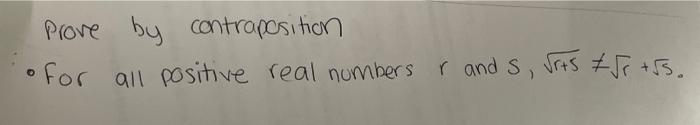 Prove by contraposition
• For all positive real numbers r and s, √r+s ≠ √r + √s.